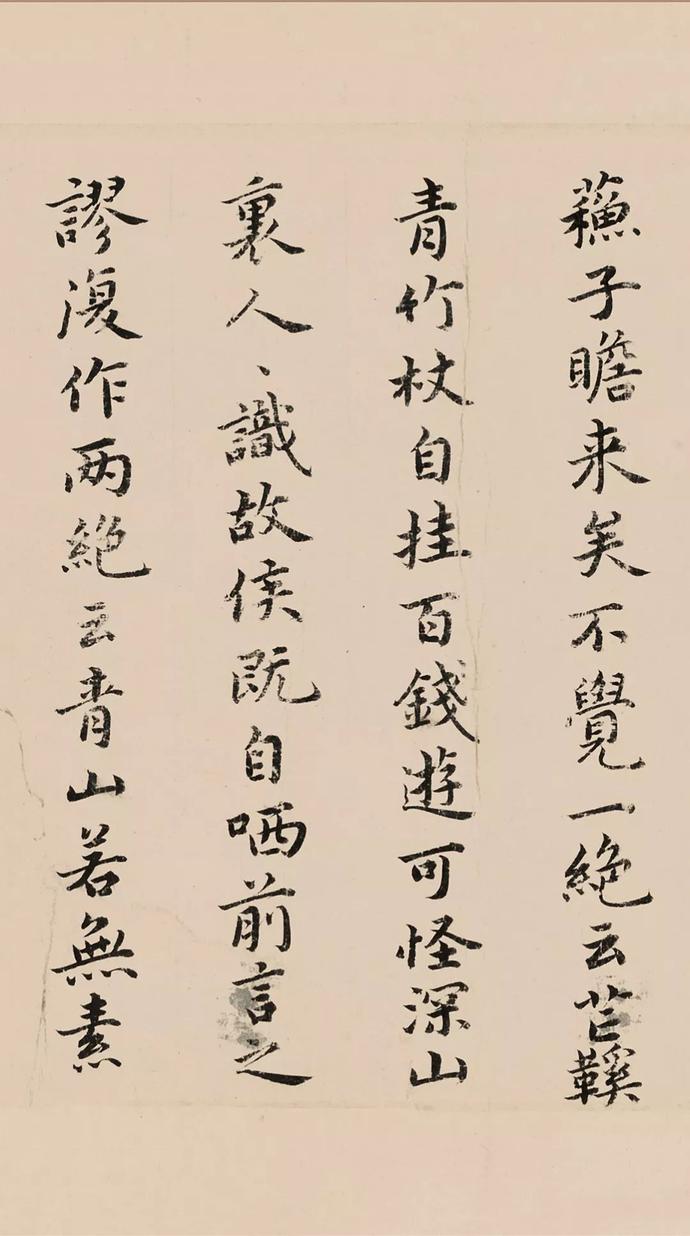 蘓子瞻来矣不覺一絶云芒鞵
青竹杖自挂百錢遊可怪深山
裏人、識故侯既自哂前言之
謬復作两絶云青山若無素